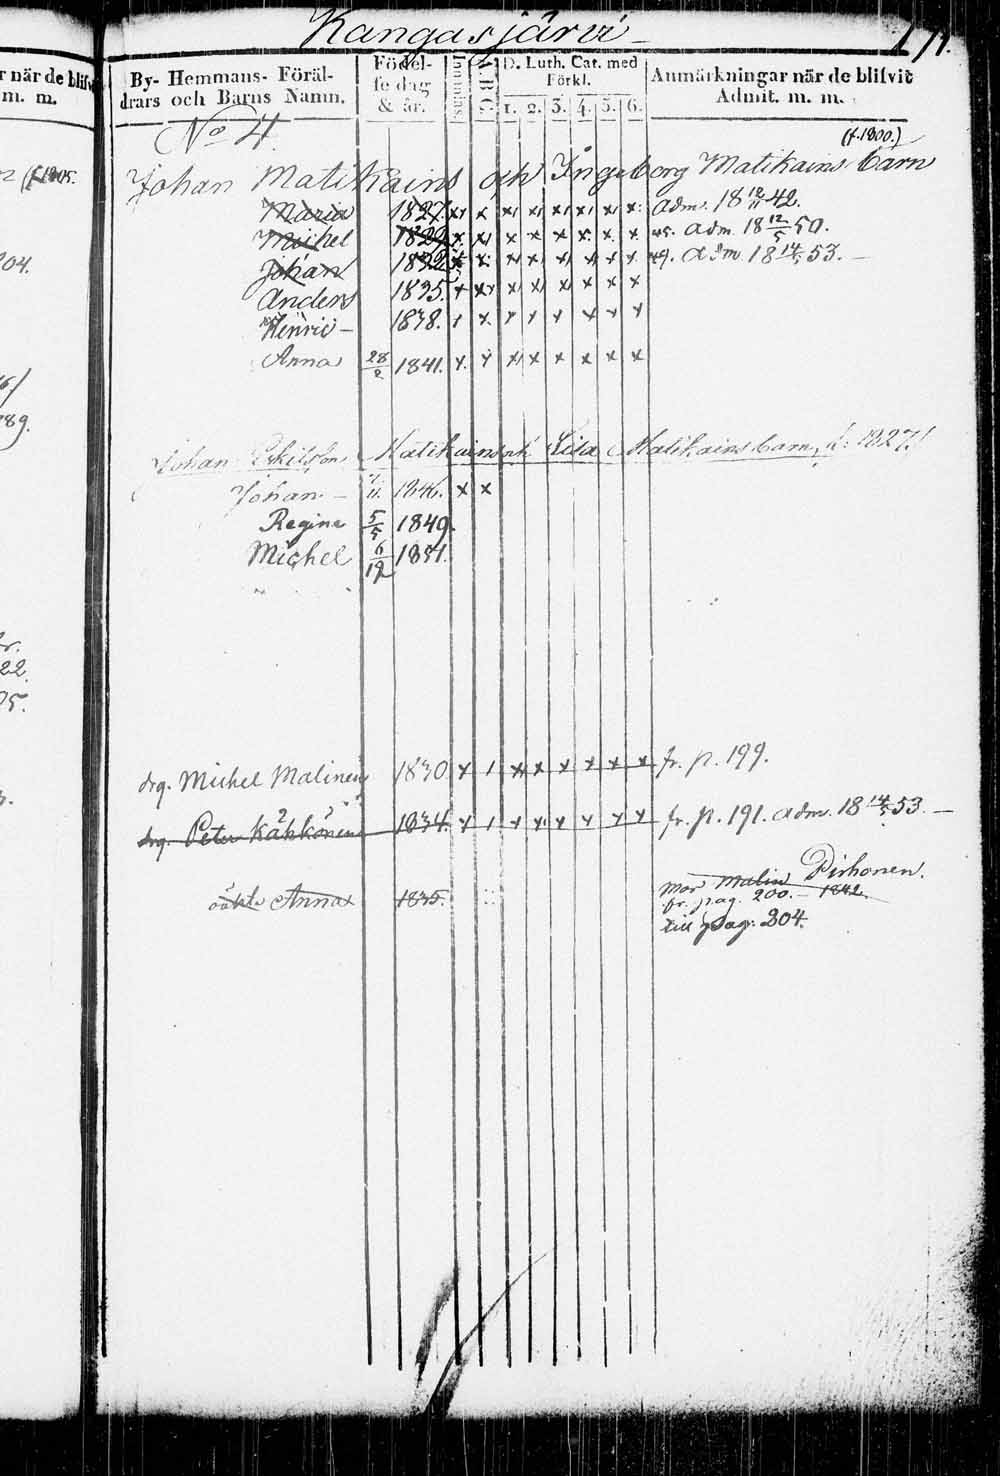 Kangasjärvi
By- Hemmans- Föräl-
drars och Barns Namn.
Födel-
se dag
& år.
Innanläs.
A B C.
D. Luth. Cat. med
Förkl.
1. 2. 3. 4. 5. 6.
Anmärkningar när de blifvit
Admit. m. m.
No 4.
(f. 1800.)
Johan Matikains och Ingeborg Matikains barn
Maria 1827. x x x x x x x x adm. 18 12/11 42.
Michel 1829 x x x x x x x x 45. adm. 18 12/5 50.
Johan 1832 x x x x x x x x 49. adm. 18 14/5 53. –
Anders 1835. x x x x x x x x
Henric – 1838. x x x x x x x x
Anna 28/2 1841. x x x x x x x x
Johan Eskilsson Matikains och Lisa Matikains barn, f: 1827.
Johan – 1846. x x
Regina 5/5 1849.
Michel 6/12 1851.
drg. Michel Malinen 1830 x 1 x x x x x x fr. p. 199.
drg. Peter Kähkönen 1834. x 1 x x x x x x fr. p. 191. adm. 18 14/5 53. –
oäkta Anna 1835.
mor Malin Pirhonen.
fr. pag. 200. – 1842.
till pag. 204.
r när de blifvit
m. m.
204.
89.
22.